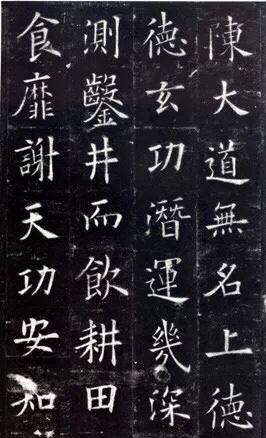 陳大道無名上德
德玄功潛運幾深
測鑿井而飲耕田
食靡謝天功安知